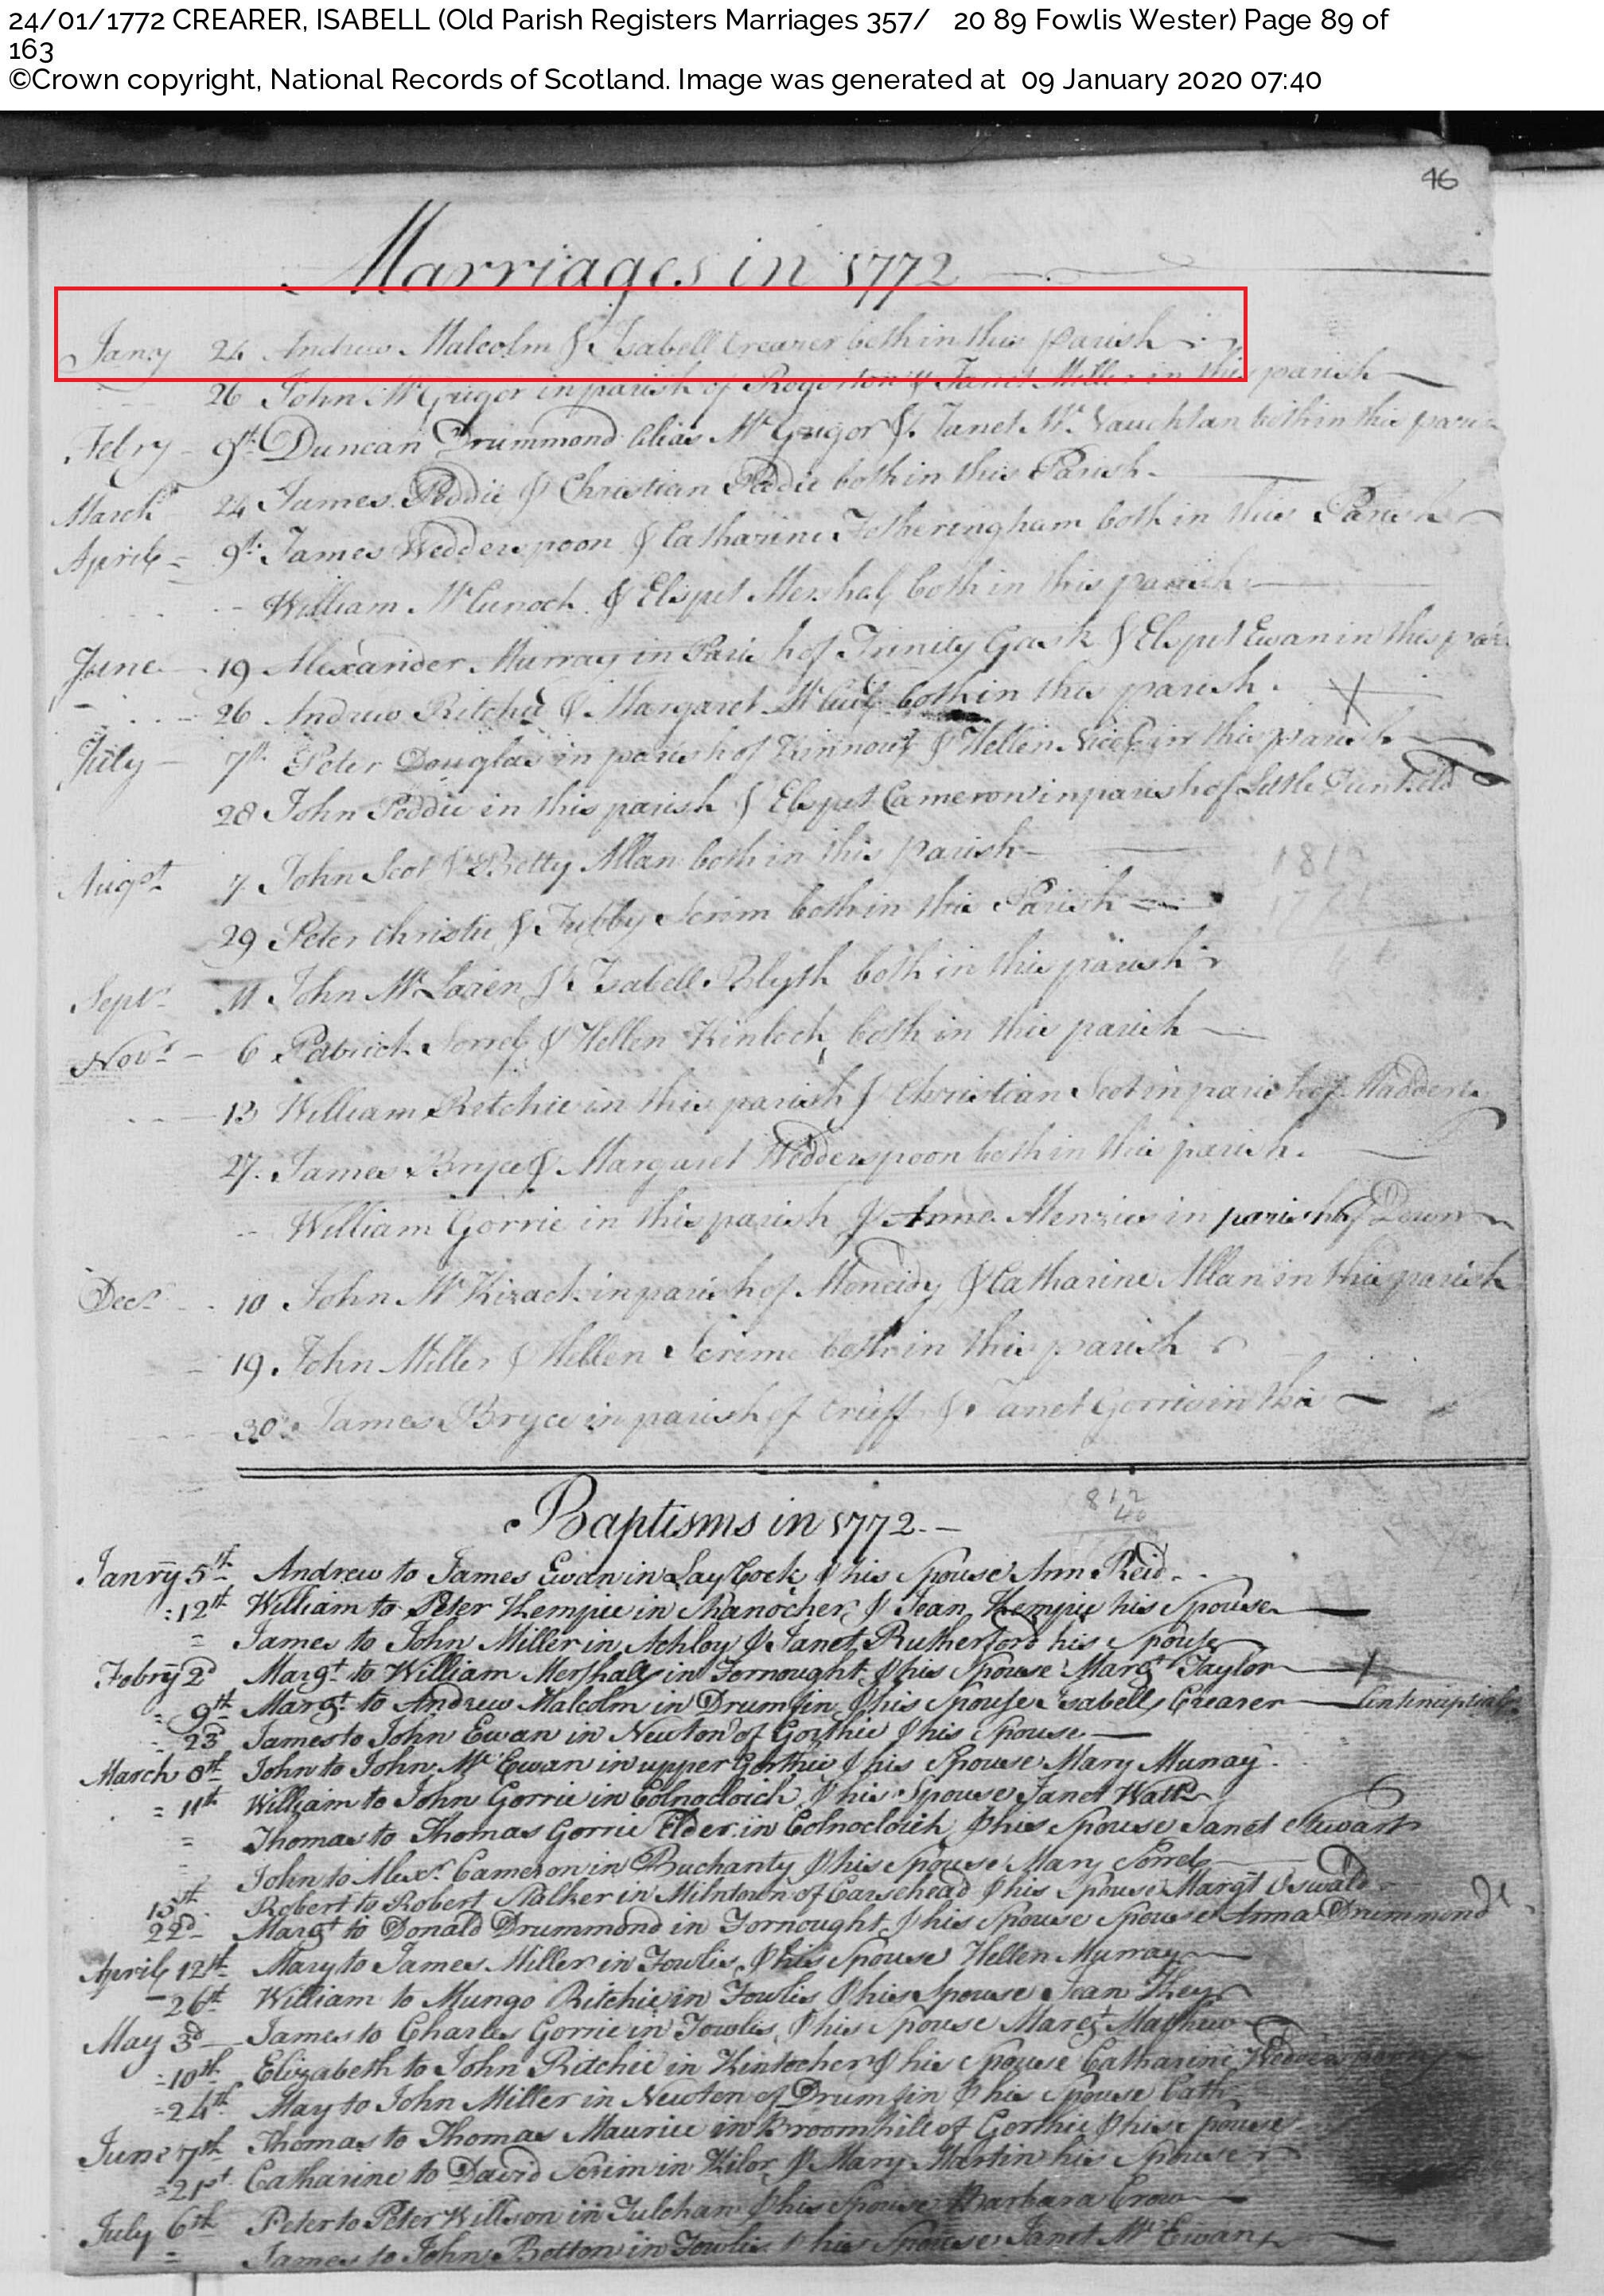 24/01/1772 CREARER, ISABELL (Old Parish Registers Marriages 357/ 20 89 Fowlis Wester) Page 89 of
163
©Crown copyright, National Records of Scotland. Image was generated at 09 January 2020 07:40
46
Marriages in 1772
Jany 24 Andrew Malcolm & Isabell Crearer both in this parish
26 John McGrigor in parish of & Janet Miller in this parish
Febry 9th Duncan Drummond alias McGrigor & Janet both in this
March 24 James Peddie & Christian Peddie both in this Parish
April 9th James Wedderspoon & Catharine Fotheringham both in this Parish
William & Elspet both in this parish
June 19 Alexander Murray in Parish of Trinity Gask & Elspet Ewan in this
26 Andrew Ritchie & Margaret both in this parish
July 7th Peter Douglas in parish of & Hellen in this parish
28 John Peddie in this parish & Elspet Cameron in parish of Little Dunkeld
Augst 7 John Scot & Betty Allan both in this parish
29 Peter Christie & Scrim both in this Parish
Septr 11 John McLaren & Isabell Blyth both in this parish
Novr 6 Patrick & Hellen Kinloch both in this parish
13 William Ritchie in this parish & Christian Scot in parish of
27 James Bryce & Margaret Wedderspoon both in this parish
William Gorrie in this parish & Anne Menzies in parish of
Decr 10 John in parish of & Catharine Allan in this parish
19 John Miller & Hellen Scrime both in this parish
30 James Bryce in parish of Crieff & Janet Gorrie in this
Baptisms in 1772
812
40
Janry 5th Andrew to James Ewan in & his Spouse Ann Reid
12th William to Peter Kempie in & Jean Kempie his Spouse
James to John Miller in & Janet Rutherford his Spouse
Febry 2d Margt to William Mershall in Fornought & his Spouse Margt Taylor
9th Margt to Andrew Malcolm in Drumfin & his Spouse Isabell Crearer
23d James to John Ewan in Newton of Gorthie & his Spouse
March 8th John to John McEwan in upper Gorthie & his Spouse Mary Murray
11th William to John Gorrie in & his Spouse Janet Watt
Thomas to Thomas Gorrie Elder in & his Spouse Janet Stewart
John to Alexr Cameron in Buchanty & his Spouse Mary
15th Robert to Robert Stalker in Milntown of Carsehead & his Spouse Margt Oswald
22d Margt to Donald Drummond in Fornought & his Spouse Spouse Anna Drummond
April 12th Mary to James Miller in Fowlis & his Spouse Hellen Murray
26th William to Mungo Ritchie in Fowlis & his Spouse Jean
May 3d James to Charles Gorrie in Fowlis & his Spouse Margt Mathew
10th Elizabeth to John Ritchie in Kintocher & his Spouse Catharine Wedderspoon
24th May to John Miller in Newton of Drumfin & his Spouse Cath
June 7th Thomas to Thomas Maurice in Broomhill of Gorthie & his spouse
21st Catharine to David Scrim in Kilor & Mary Martin his Spouse
July 6th Peter to Peter Willson in Tulchan & his Spouse Barbara Crow
James to John Betton in Fowlis & his Spouse Janet McEwan